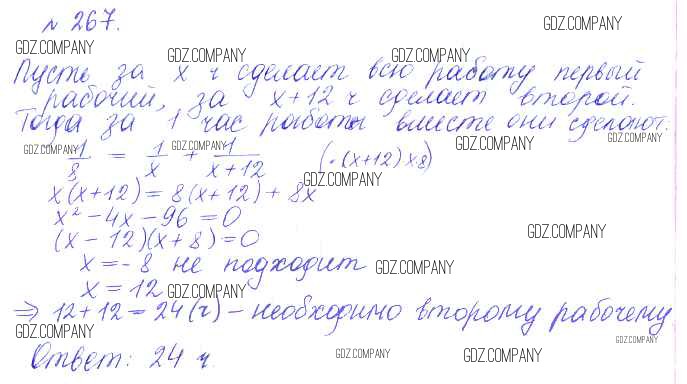 № 267.
GDZ.COMPANY
GDZ.COMPANY
GDZ.COMPANY GDZ.COMPANY
Пусть за x ч сделает всю работу первый
рабочий, за x+12 ч сделает второй.
Тогда за 1 час работы вместе они сделают:
GDZ.COMPANY GDZ.COMPANY GDZ.COMPANY GDZ.COMPANY
1/8 = 1/x + 1/(x+12) (·(x+12)x8)
GDZ.COMPANY
x(x+12) = 8(x+12) + 8x
x² - 4x - 96 = 0
GDZ.COMPANY
(x - 12)(x + 8) = 0
x = -8 не подходит GDZ.COMPANY
x = 12 GDZ.COMPANY
⇒ 12 + 12 = 24 (ч) - необходимо второму рабочему
GDZ.COMPANY GDZ.COMPANY
Ответ: 24 ч. GDZ.COMPANY GDZ.COMPANY